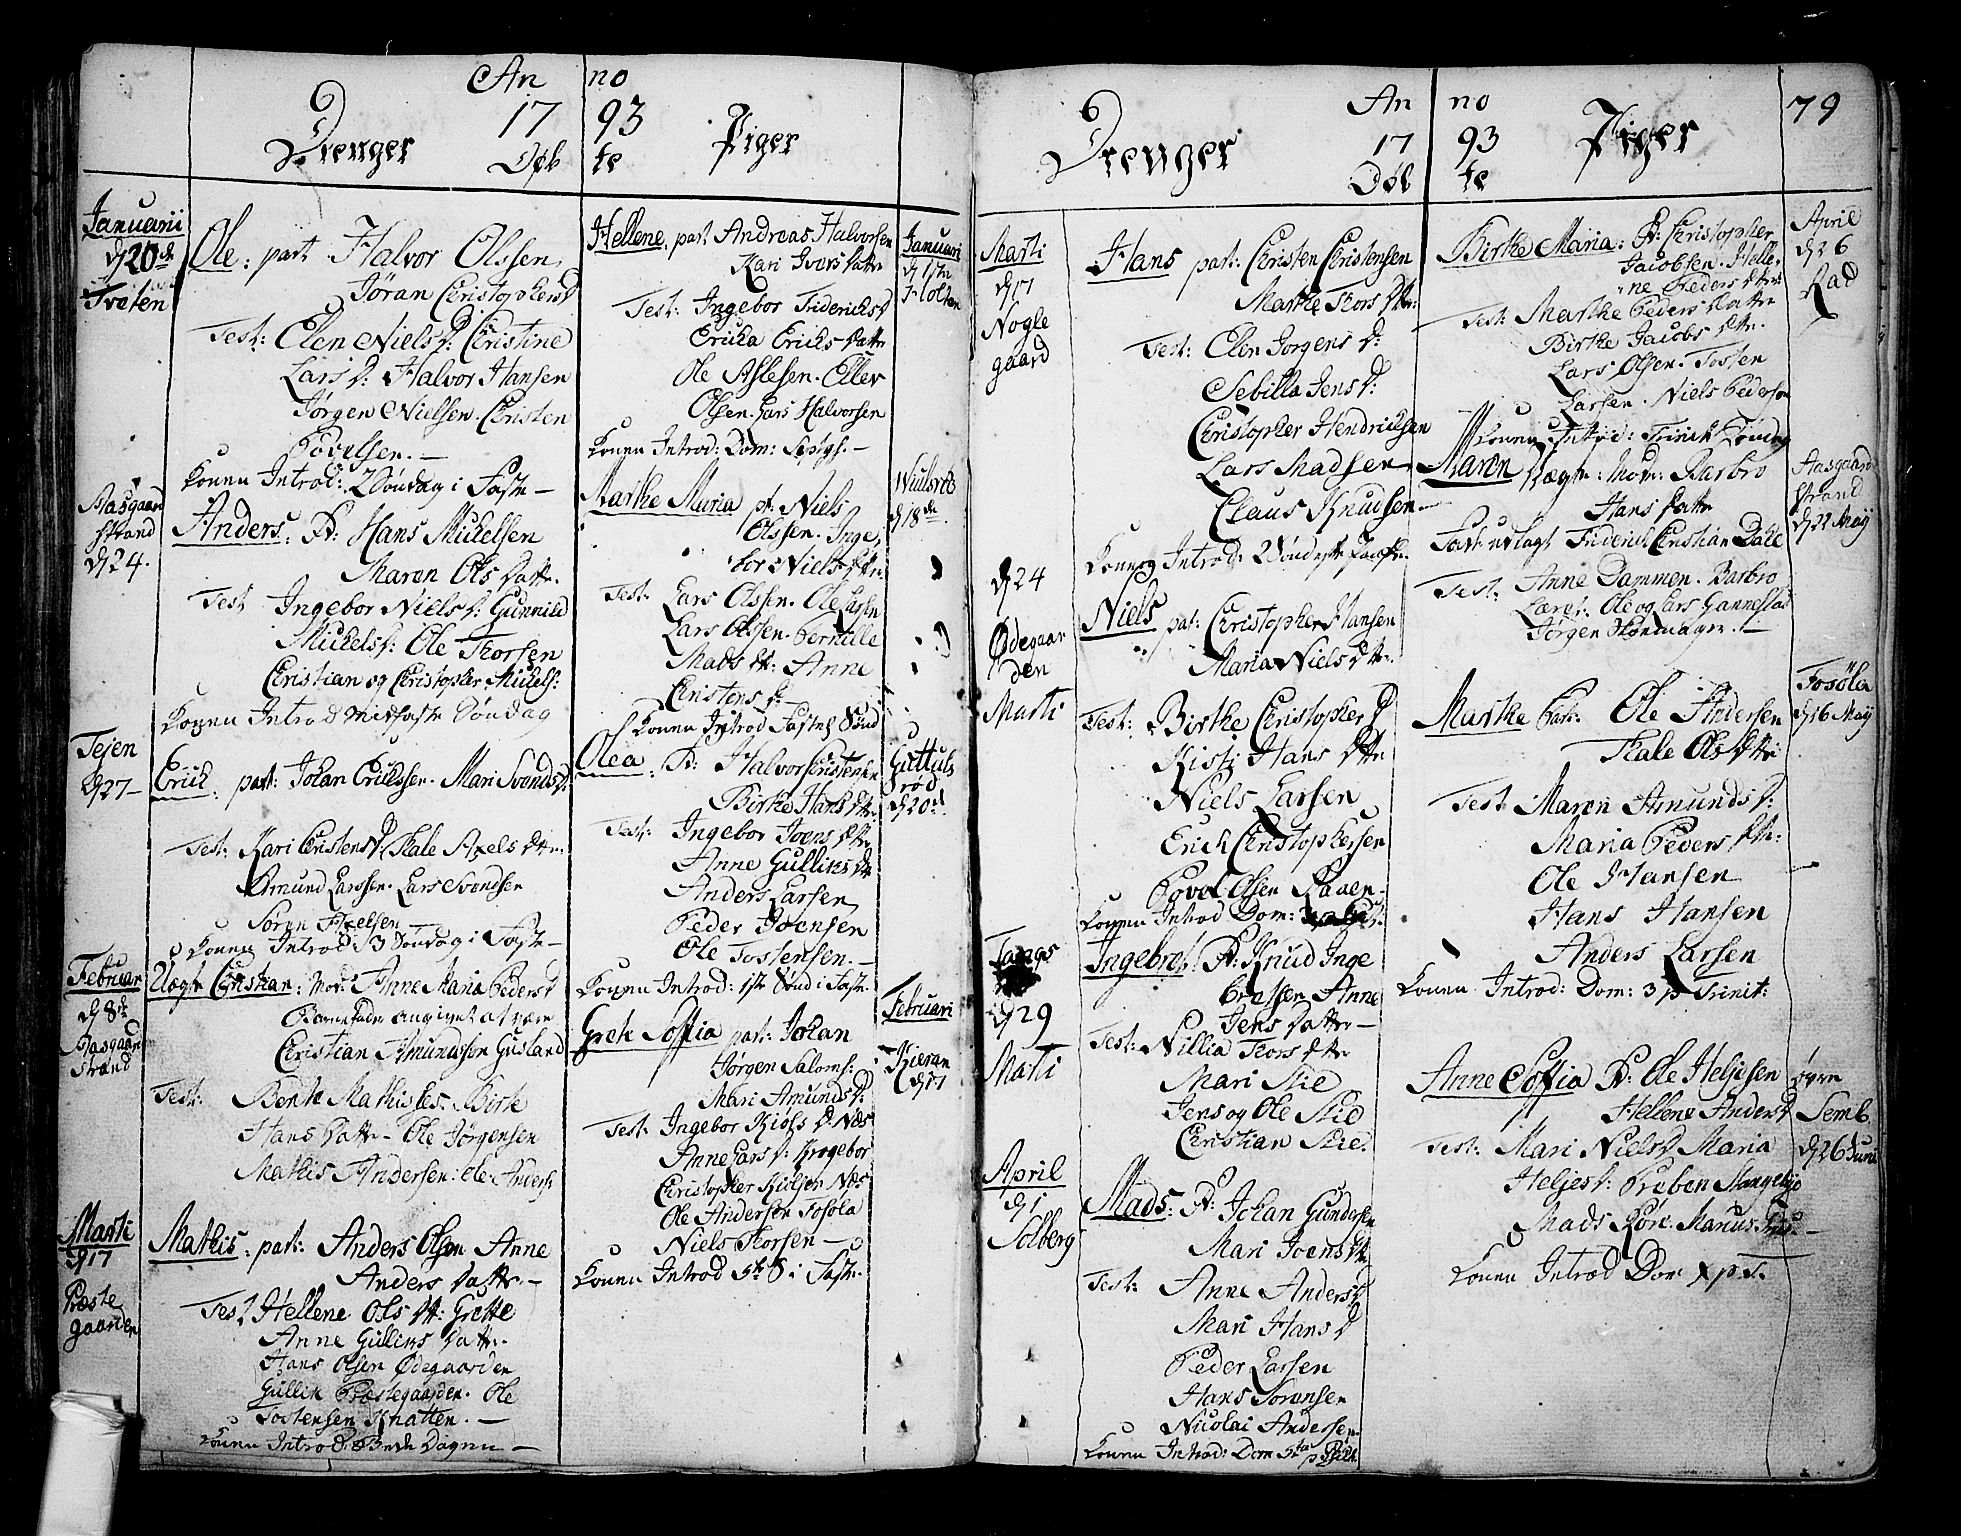 Anno
1793
Drenger Døbte Piger
Januarii
d 20de
Tveten
Ole: part Halvor Olssen
Jøran Christophersd
Test: Elen Nielsd: Christine
Larsd: Halvor Hansen
Jørgen Nielsen. Christen
Povelsen. —
Konen Introd: 2 Søndag i Faste —
Aasgaard
strand
d 24.
Anders: P: Hans Mickelsen
Maren Ols Datter.
Test Ingebor Nielsd: Gunnild
Mickelsd: Ole Thorsen
Christian og Christopher Mickels:
Konen Introd Midfaste Søndag
Tejen
d 27 —
Erick: part: Johan Ericksen. Mari Svendsd:
Test: Kari Christensd, Skale Axels dtter:
Amund Larssen. Lars Svendsen
Søren Axelsen —
Konen Introd: 3 Søndag i Faste —
Februar
d 8de
Aasgaard
strand
Uægt Christian: Mod: Anne Maria Pedersd
Barnefader angivet at være
Christian Amundssen Gusland
Test: Bente Mathisdes. Birte
Hans Datter — Ole Jørgensen
Mathis Andersen: Ole Anders
Marti
d 17
Præste
gaarden
Mathis: part: Anders Olsen Anne
Anders Datter. —
Test Hellene Ols dtt: Grette
Anne Gulliks Datter.
Hans Olsen Ødegaarden
Gullik Præstegaarden. Ole
Tostensen Knatten. —
Konen Introd: Bede Dagen —
Hellene, part Andreas Halvorsen
Kari Ivers Datter
Test: Ingebor Fridericksd
Ericka Ericks Datter
Ole Aslesen. Eller
Olsen. Lars Halvorsen
Konen Introd: Dom: Septgs. —
Januari
d 17de
Holtan
Marthe Maria pt: Niels
Olssen. Inge
bor Niels dtt:
Test: Lars Olssen. Ole Larsen
Lars Olssen. Pernille
Mads dtt: Anne
Christensd —
Konen Introd Fastel Sønd
Wullsrød
d 18de.
Olea: P: Halvor Christensen
Birthe Hans dtr
Test: Ingebor Joens dtr
Anne Gulliks dtr
Anders Larsen
Peder Joensen
Ole Tostensen. —
Konen Introd: 1ste Sønd i Faste.
Guttuls
rød
d 20de.
Grete Soffia part: Johan
Jørgen Saloms:
Mari Amundsd:
Test: Ingebor Kiølsd: Næs
Anne Larsd: Krogebor
Christopher Kieljer Næs
Ole Andersen Fosøla
Niels Thorsen —
Konen Introd 5te S i Faste.
Februari
Kieran
d 17
Anno
1793
79
Drenger Døbte Piger
Marti
d 17
Nogle
gaard
Hans part: Christen Christensen
Marthe Thors dtr:
Test: Elen Jorgensd:
Sebilla Jensd:
Christopher Hendricksen
Lars Madsen
Claus Knudsen —
Konen Introd: 2den dag Paaske.
d 24
Ødegaar
den
Marti
Niels part: Christopher Hansen
Maria Niels dtr:
Test: Birthe Christopher d
Kisti Hans dtr
Niels Larsen
Erich Christophersen
Povel Olsen Raaen.
Konen Introd Dom:
Tange
d 29
Marti
Ingebrot P: Knud Inge
bretsen Anne
Jens Datter —
Test: Nillia Thors dtr
Mari Skie
Jens og Ole Skie
Christian Skie.
April
d 1
Solberg
Mads: P: Johan Gundersen
Mari Joens dtr
Test: Anne Andersd
Mari Hans d
Peder Larsen
Hans Sorensen
Nicolai Andersen.
Konen Introd: Dom 5ta p
Birthe Maria: P: Christopher
Jacobsen. Helle
ne Peders dtter
Test: Marthe Peders Datter
Birthe Jacobs dtr.
Lars Olsen. Tosten
Larsen. Niels Pedersen
Konen Introd: Trinit Søndag
April
d 26
Rad
Maren Uægte: Mod: Barbro
Hans Datter
Fader udlagt Friderich Christian Dahl
Test: Anne Dammen. Barbro
Ole og Lars Gannestad
Jørgen Skomager. —
Aasgaard
strand
d 22 Maij
Marthe Part: Ole Andersen
Skale Ols dtr:
Test Maren Amundsd:
Maria Peders dtr:
Ole Hansen
Hans Hansen
Anders Larsen
Konen Introd: Dom: 3 p Trinit:
Fosøla
d 16 Maij
Anne Soffia P: Ole Heljesen
Hellene Andersd
Test: Mari Nielsd Maria
Heljesd: Preben Hangebjo
Mads Rør: Marius
Konen Introd Dom X p T.
øvre
Semb
d 26 Juni